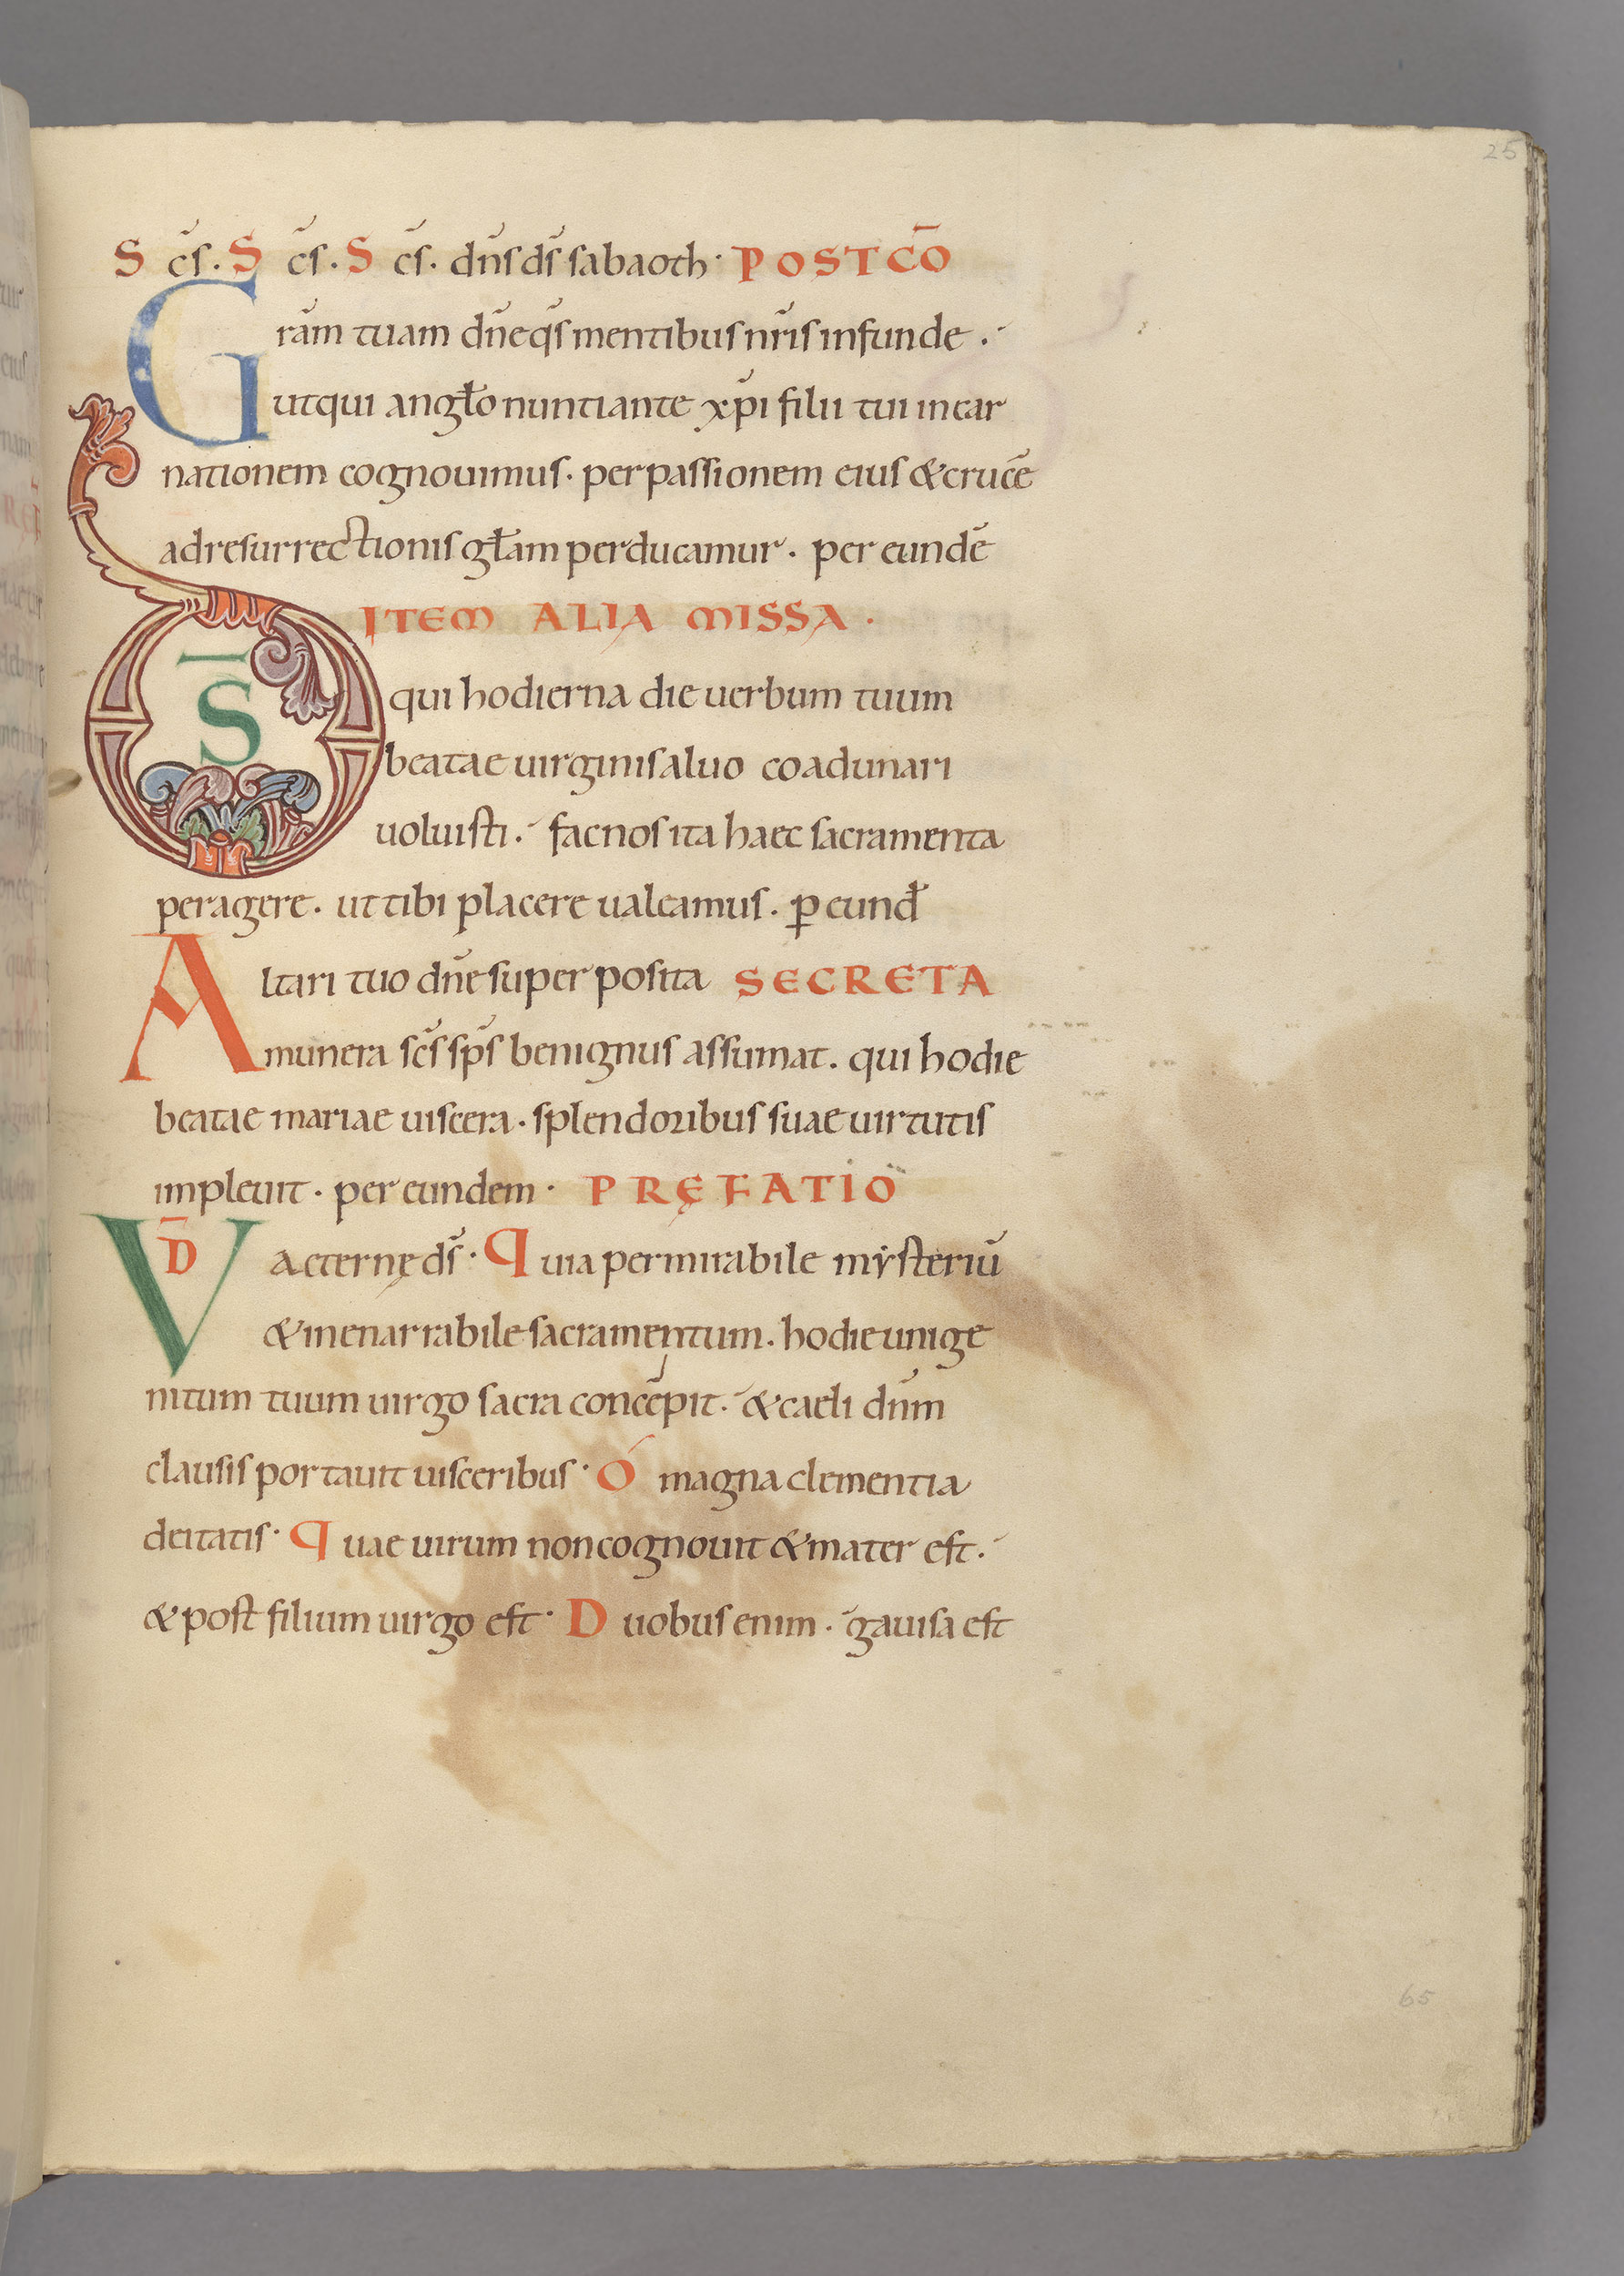 25
Scs̄. Scs̄. Scs̄. dn̄s ds̄ sabaoth· POSTCŌ
Grām tuam dn̄e qs̄ mentibus nr̄is infunde.
ut qui angł̄o nuntiante xp̄i filii tui incar
nationem cognouimus. per passionem eius & crucē
ad resurrectionis gł̄am perducamur. per eundē
ITEM ALIA MISSA.
D̄S qui hodierna die uerbum tuum
beatae uirginis aluo coadunari
uoluisti. fac nos ita haec sacramenta
peragere. ut tibi placere ualeamus. ꝑ eund̄
Altari tuo dn̄e super posita SECRETA
munera scs̄ sps̄ benignus assumat. qui hodie
beatae mariae uiscera. splendoribus suae uirtutis
impleuit. per eundem. PRĘFATIO
VD̄ aeternę ds̄. Quia per mirabile mẏsteriū
& inenarrabile sacramentum. hodie unige
nitum tuum uirgo sacra concępit. & caeli dn̄m
clausis portauit uisceribus. Ó magna clementia
deitatis. Quae uirum non cognouit & mater est.
& post filium uirgo est. Duobus enim. gauisa est
65